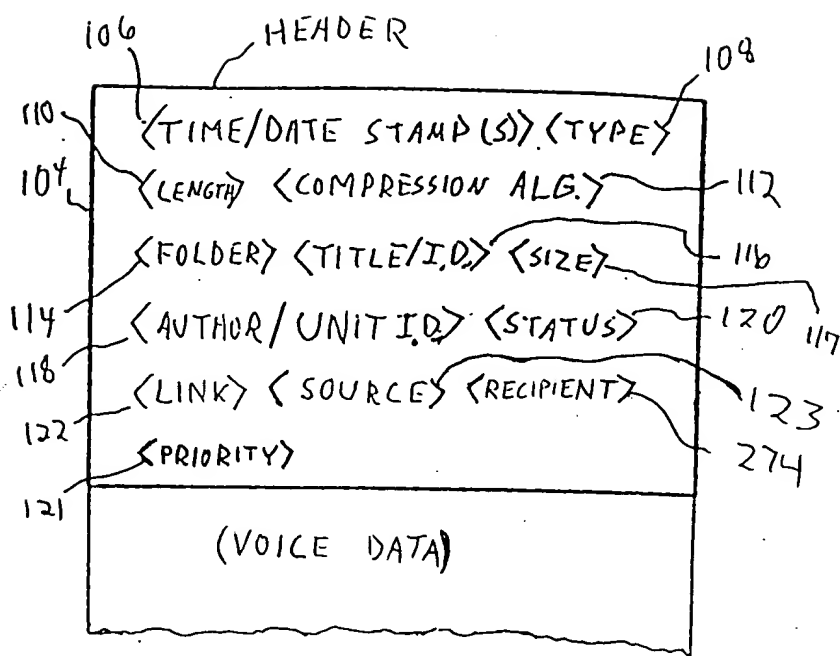 106 HEADER 108
110 <TIME/DATE STAMP(S)> <TYPE>
104 <LENGTH> <COMPRESSION ALG.> 112
<FOLDER> <TITLE/I.D.> <SIZE> 116
114 <AUTHOR/UNIT I.D.> <STATUS> 120 117
118 <LINK> <SOURCE> <RECIPIENT> 123
122 <PRIORITY> 274
121 (VOICE DATA)